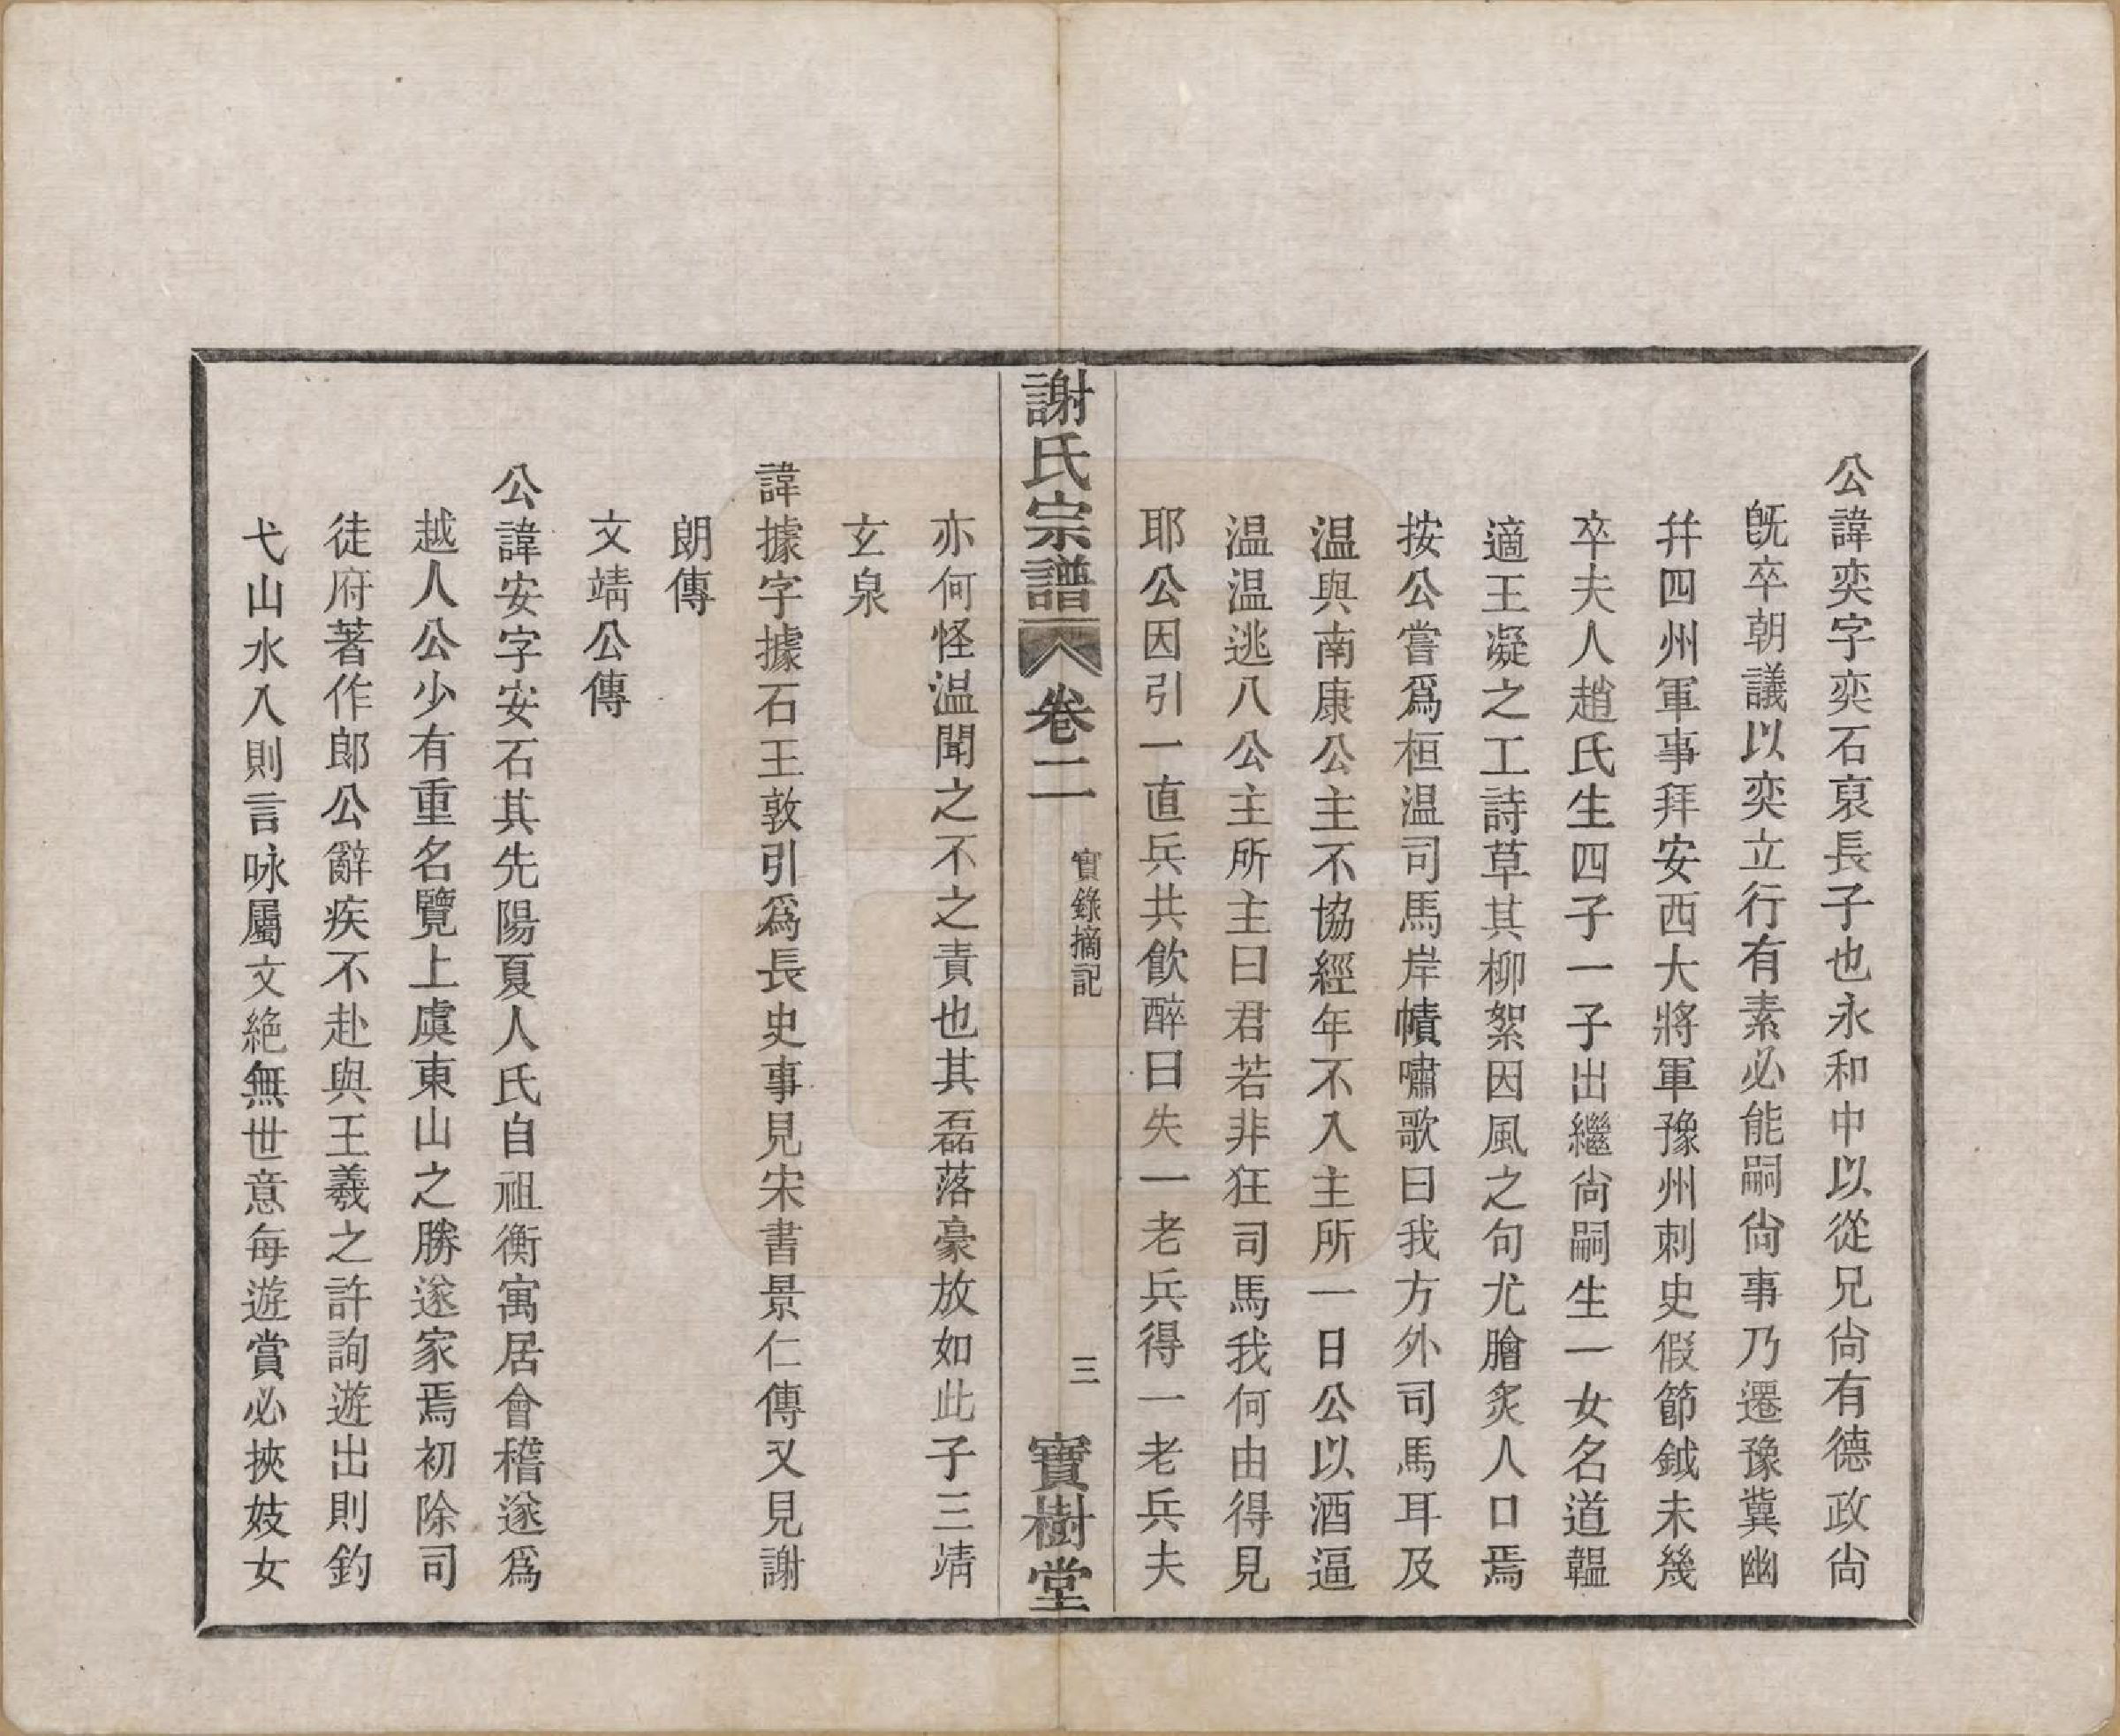 公諱奕字奕石裒長子也永和中以從兄尙有德政尙
旣卒朝議以奕立行有素必能嗣尙事乃遷豫冀幽
幷四州軍事拜安西大將軍豫州刺史假節鉞未幾
卒夫人趙氏生四子一子出繼尙嗣生一女名道韞
適王凝之工詩草其柳絮因風之句尤膾炙人口焉
按公嘗爲桓温司馬岸幘嘯歌曰我方外司馬耳及
温與南康公主不協經年不入主所一日公以酒逼
温温逃入公主所主曰君若非狂司馬我何由得見
耶公因引一直兵共飲醉曰失一老兵得一老兵夫
謝氏宗譜
卷二
實錄摘記
三
寶樹堂
亦何怪温聞之不之責也其磊落豪放如此子三靖
玄泉
諱據字據石王敦引爲長史事見宋書景仁傳又見謝
朗傳
文靖公傳
公諱安字安石其先陽夏人氏自祖衡寓居會稽遂爲
越人公少有重名覽上虞東山之勝遂家焉初除司
徒府著作郎公辭疾不赴與王羲之許詢遊出則釣
弋山水入則言咏屬文絶無世意每遊賞必挾妓女